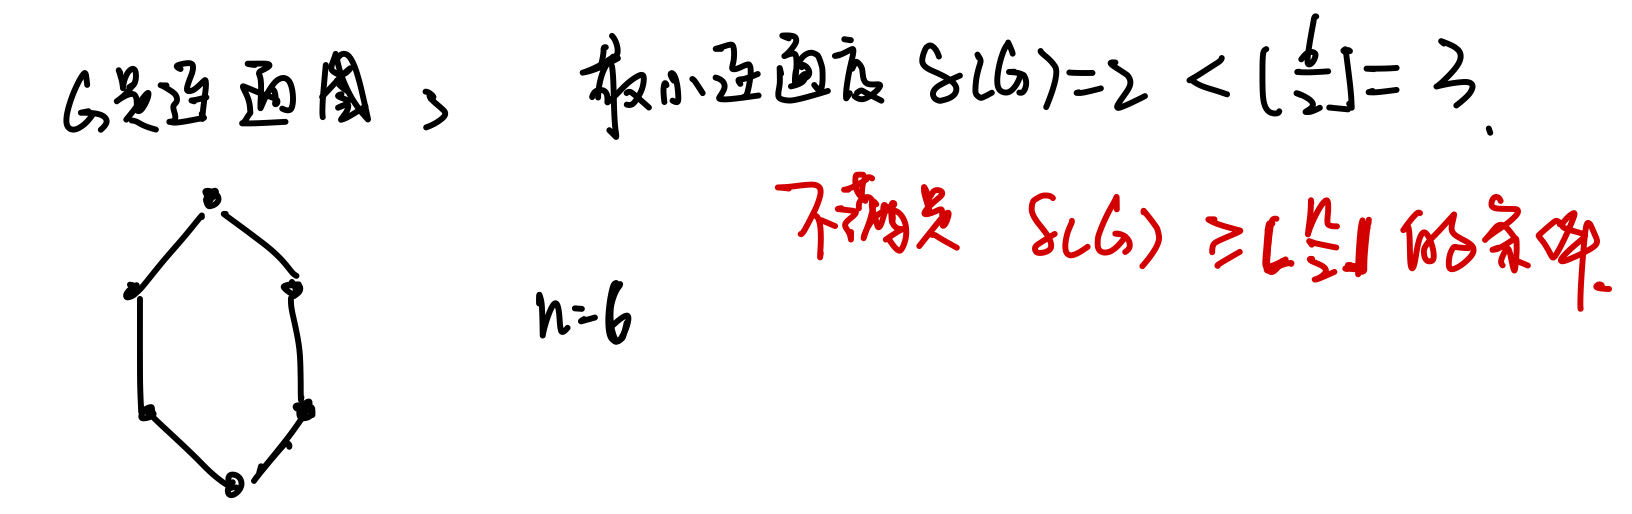 G是连通图, 最小连通度 δ(G)=2 < [6/2]=3.
不满足 δ(G) ≥ [n/2] 的条件.
n=6